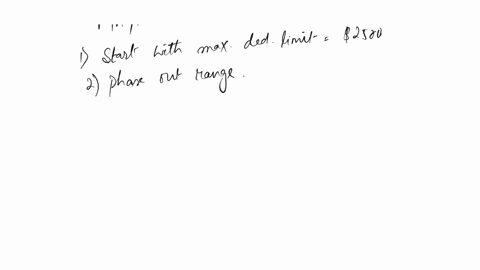 1) Start with max. ded. limit = $2500
2) phase out range.